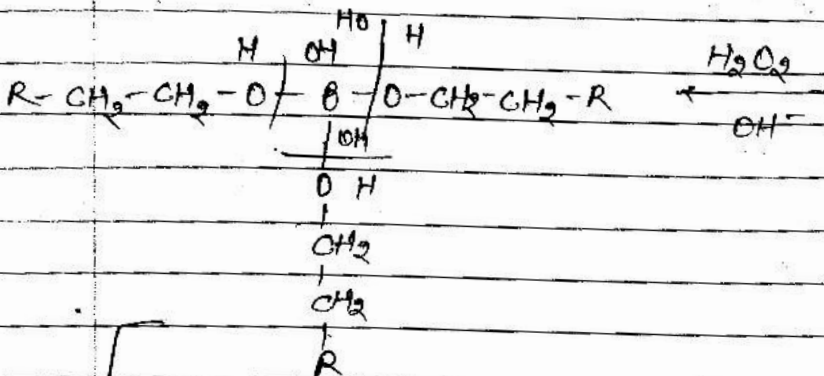 HO H
H OH H2O2
R- CH2 - CH2 - O - B - O - CH2 - CH2 - R ←
OH OH-
O H
CH2
CH2
R